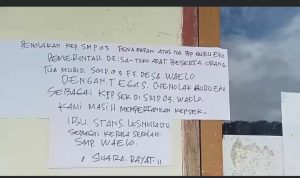 PENOLAKAN KEP SMP 03 TENA BARU ATAS NA
PEMERINTAH DESA-TOKO ADAT BESERTA ORANG
TUA MURID. SMP 03 DESA WAELO
DENGAN TEGAS. MENOLAK
SEBAGAI KEPSEK DI SMP 03. WAELO.
KAMI MASIH MEMPERTAHANKAN KEPSEK.
IBU STANS. LESNUSSA
SEBAGAI KEPALA SEKOLAH
SMP WAELO.
"SUARA-RAYAT"